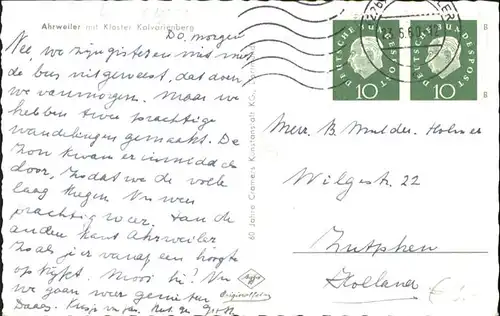 Ahrweiler mit Kloster Kalvarienberg
Do. morgen
Nee, we zijn gisteren niet met
de bus mitgeweest, dat doen
we vanmorgen. Maar we
hebben twee prachtige
wandelingen gemaakt. De
zon kwam er inmiddels
door, zodat we de volle
laag kregen. Nu weer
prachtig weer. Aan de
andere kant Ahrweiler
zoals je er vanaf een hoogte
op kijkt. Mooi hè! Nu
we gaan weer genieten
Daag.
60 Jahre Cramers Kunstanstalt KG., Dortmund
Originalfoto
DEUTSCHE BUNDESPOST
10
DEUTSCHE BUNDESPOST
10
B
B
Mevr. B Mulder-Holmer
Wilgestr. 22
Zutphen
Holland